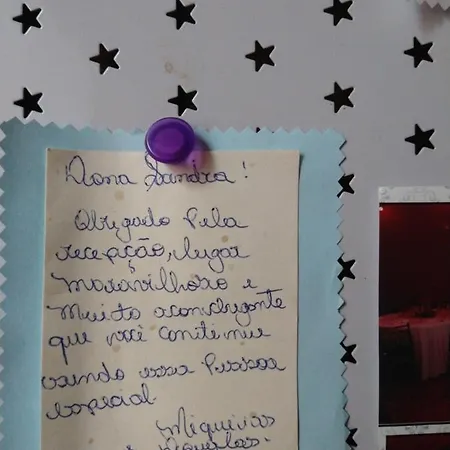 Dona Sandra!
Obrigado pela
recepção, lugar
maravilhoso e
muito aconchegante
que você continue
sendo essa pessoa
especial.
Miqueias
e